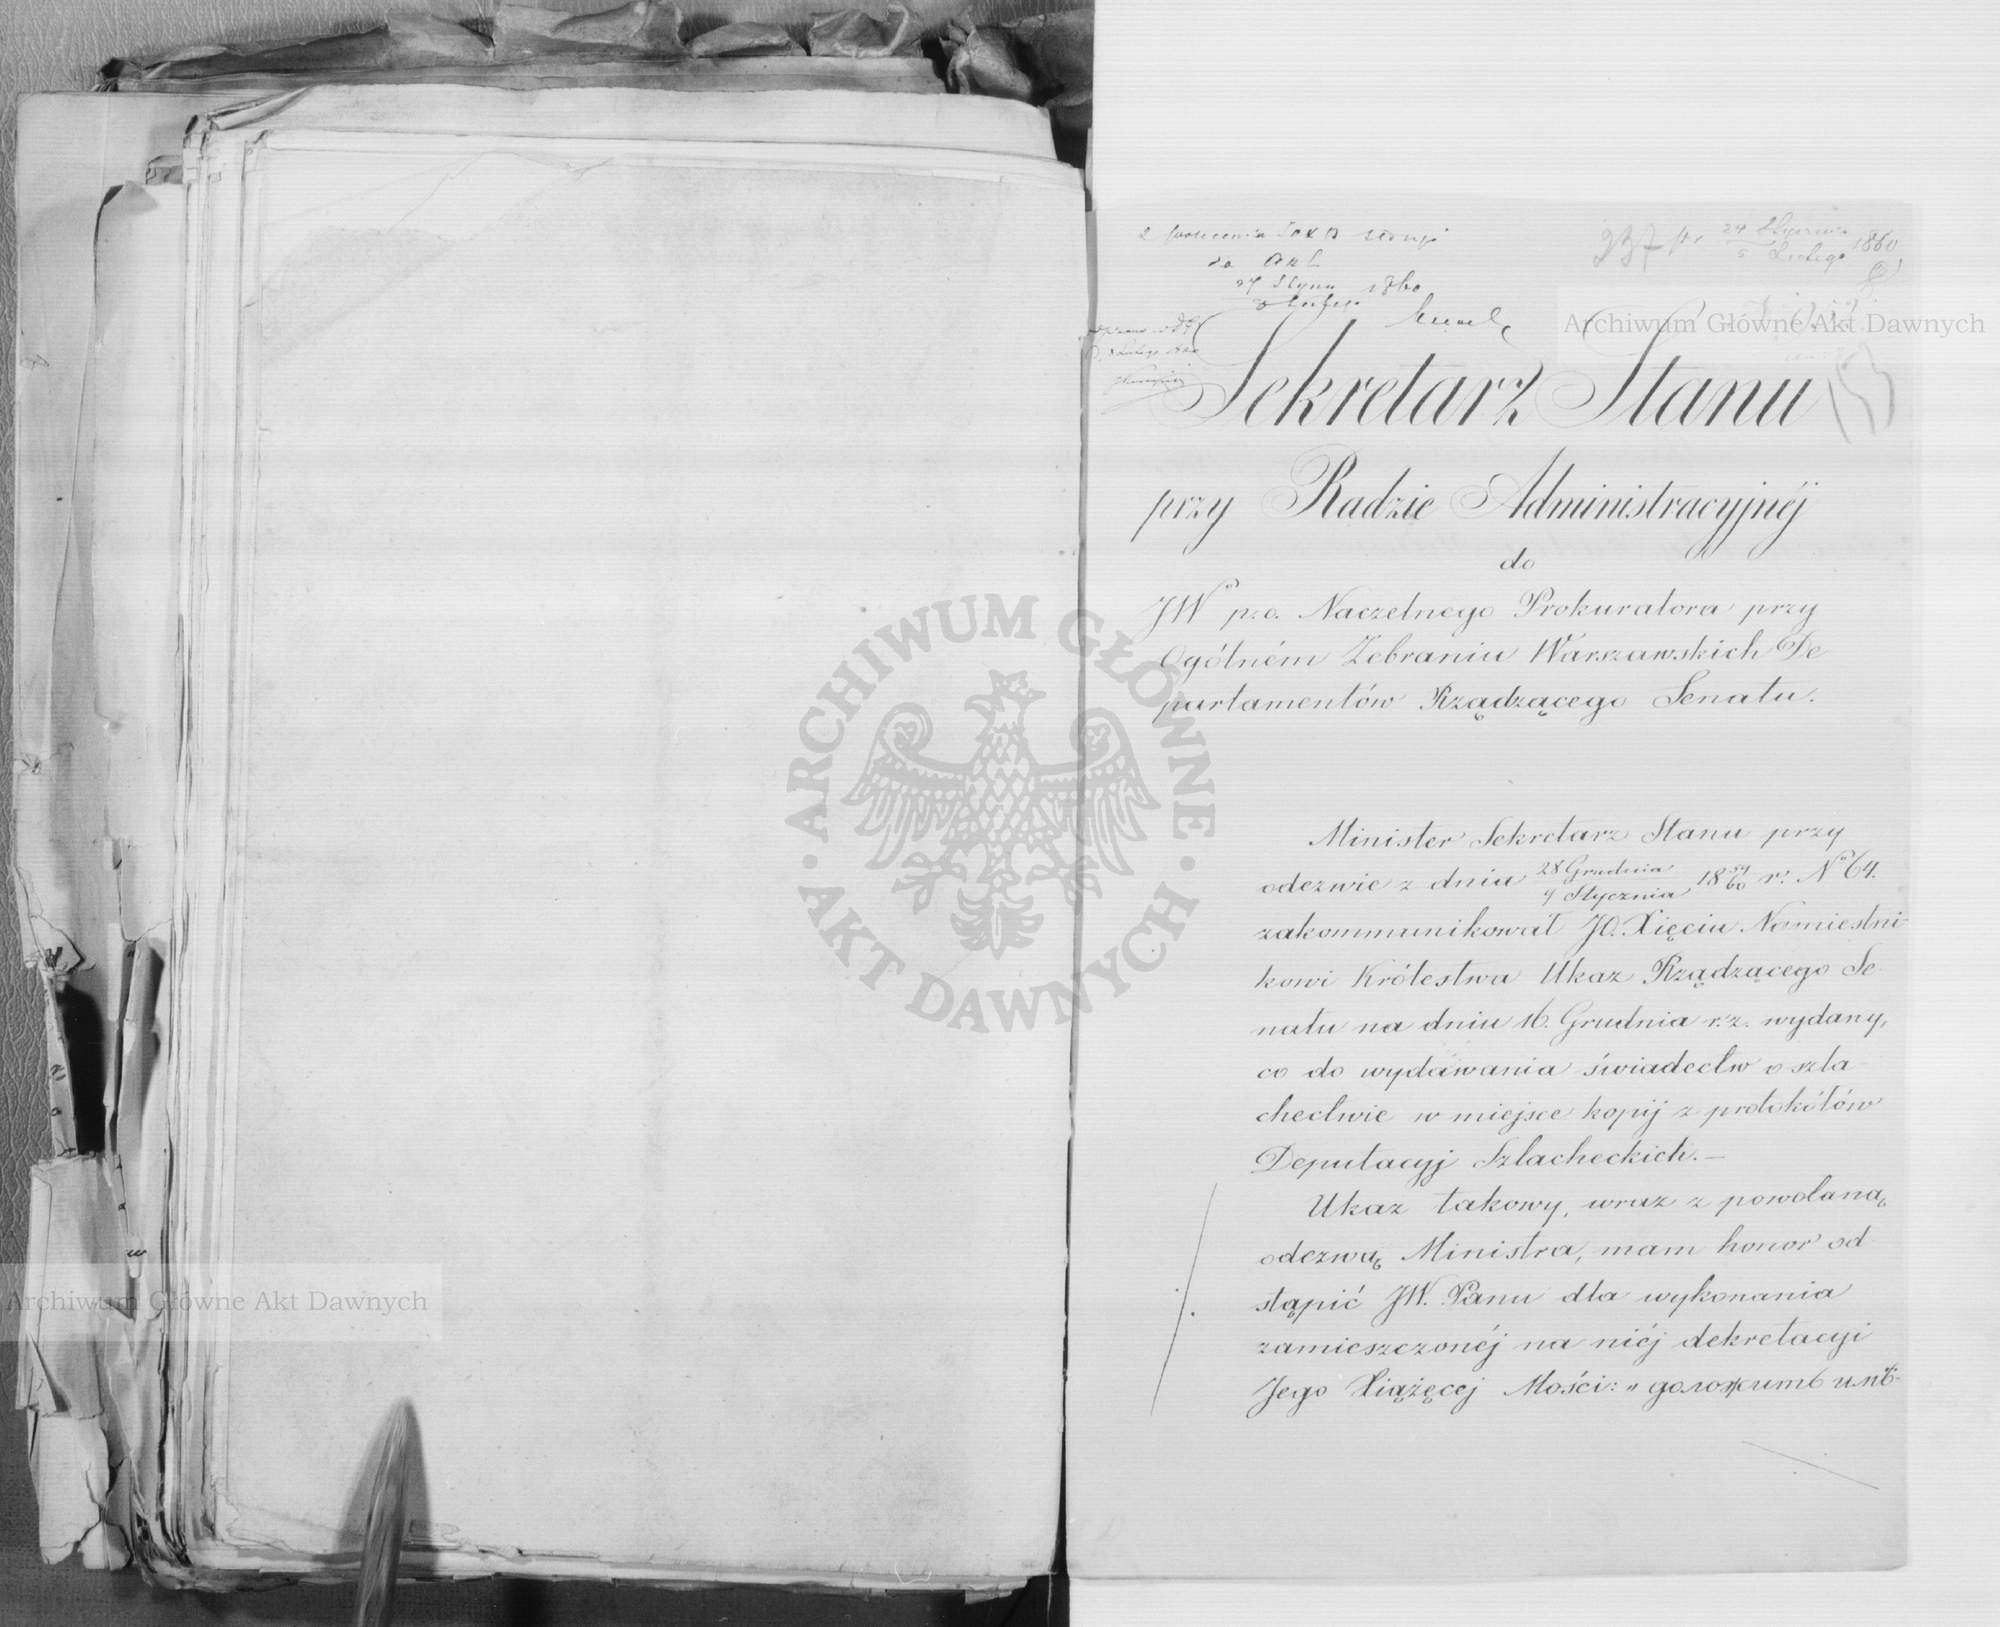 24 Stycznia
5 Lutego 1860
Sekretarz Stanu
przy Radzie Administracyjnéj
do
JWo p.o. Naczelnego Prokuratora przy
Ogólném Zebraniu Warszawskich De
partamentów Rządzącego Senatu.
Minister Sekretarz Stanu przy
odezwie z dnia 28 Grudnia / 9 Stycznia 18 59/60 r. No 64.
zakommunikował JO. Xięciu Namiestni-
kowi Królestwa Ukaz Rządzącego Se
natu na dniu 16. Grudnia r.z. wydany,
co do wydawania świadectw o szla
chectwie w miejsce kopij z protokółów
Deputacyj Szlacheckich.—
Ukaz takowy, wraz z powołaną
odezwą Ministra, mam honor od
stąpić JW. Panu dla wykonania
zamieszczonéj na niéj dekretacyi
Jego Xiążęcej Mości:
Archiwum Główne Akt Dawnych
Archiwum Główne Akt Dawnych
ARCHIWUM GŁÓWNE · AKT DAWNYCH ·